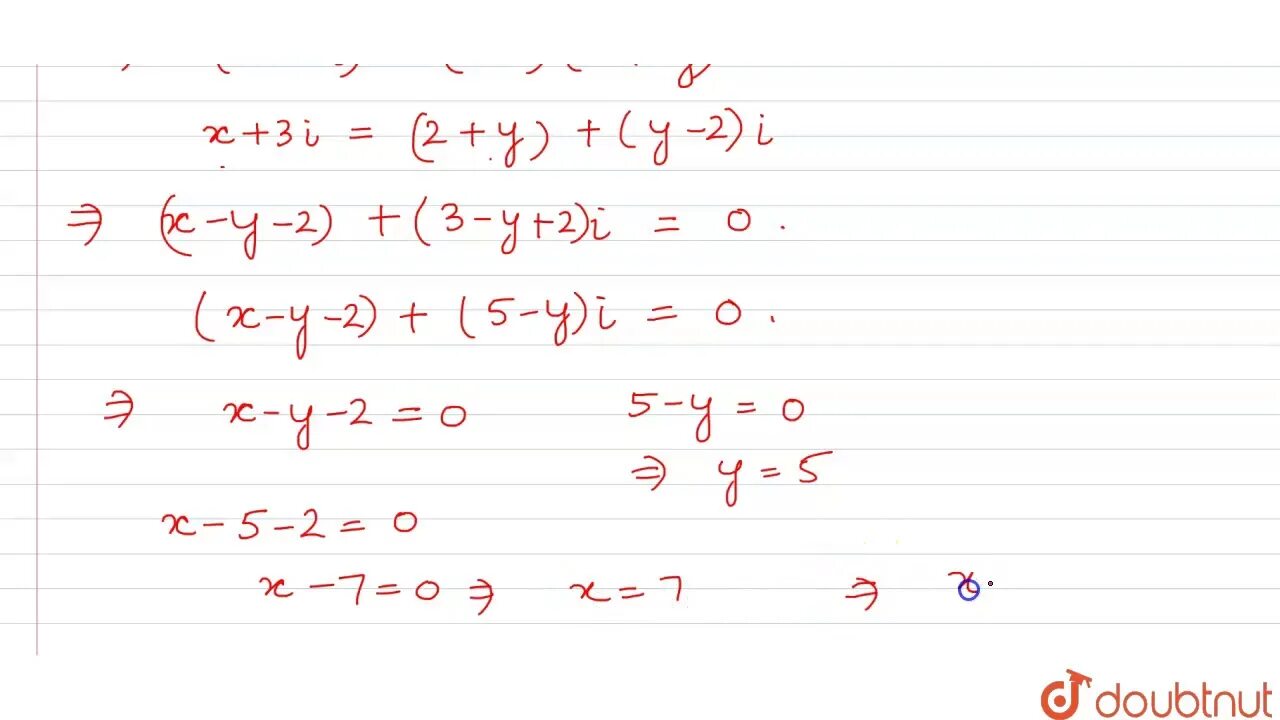 x + 3i = (2 + y) + (y - 2)i
⇒ (x - y - 2) + (3 - y + 2)i = 0.
(x - y - 2) + (5 - y)i = 0.
⇒ x - y - 2 = 0 5 - y = 0
⇒ y = 5
x - 5 - 2 = 0
x - 7 = 0 ⇒ x = 7 ⇒ x
doubtnut